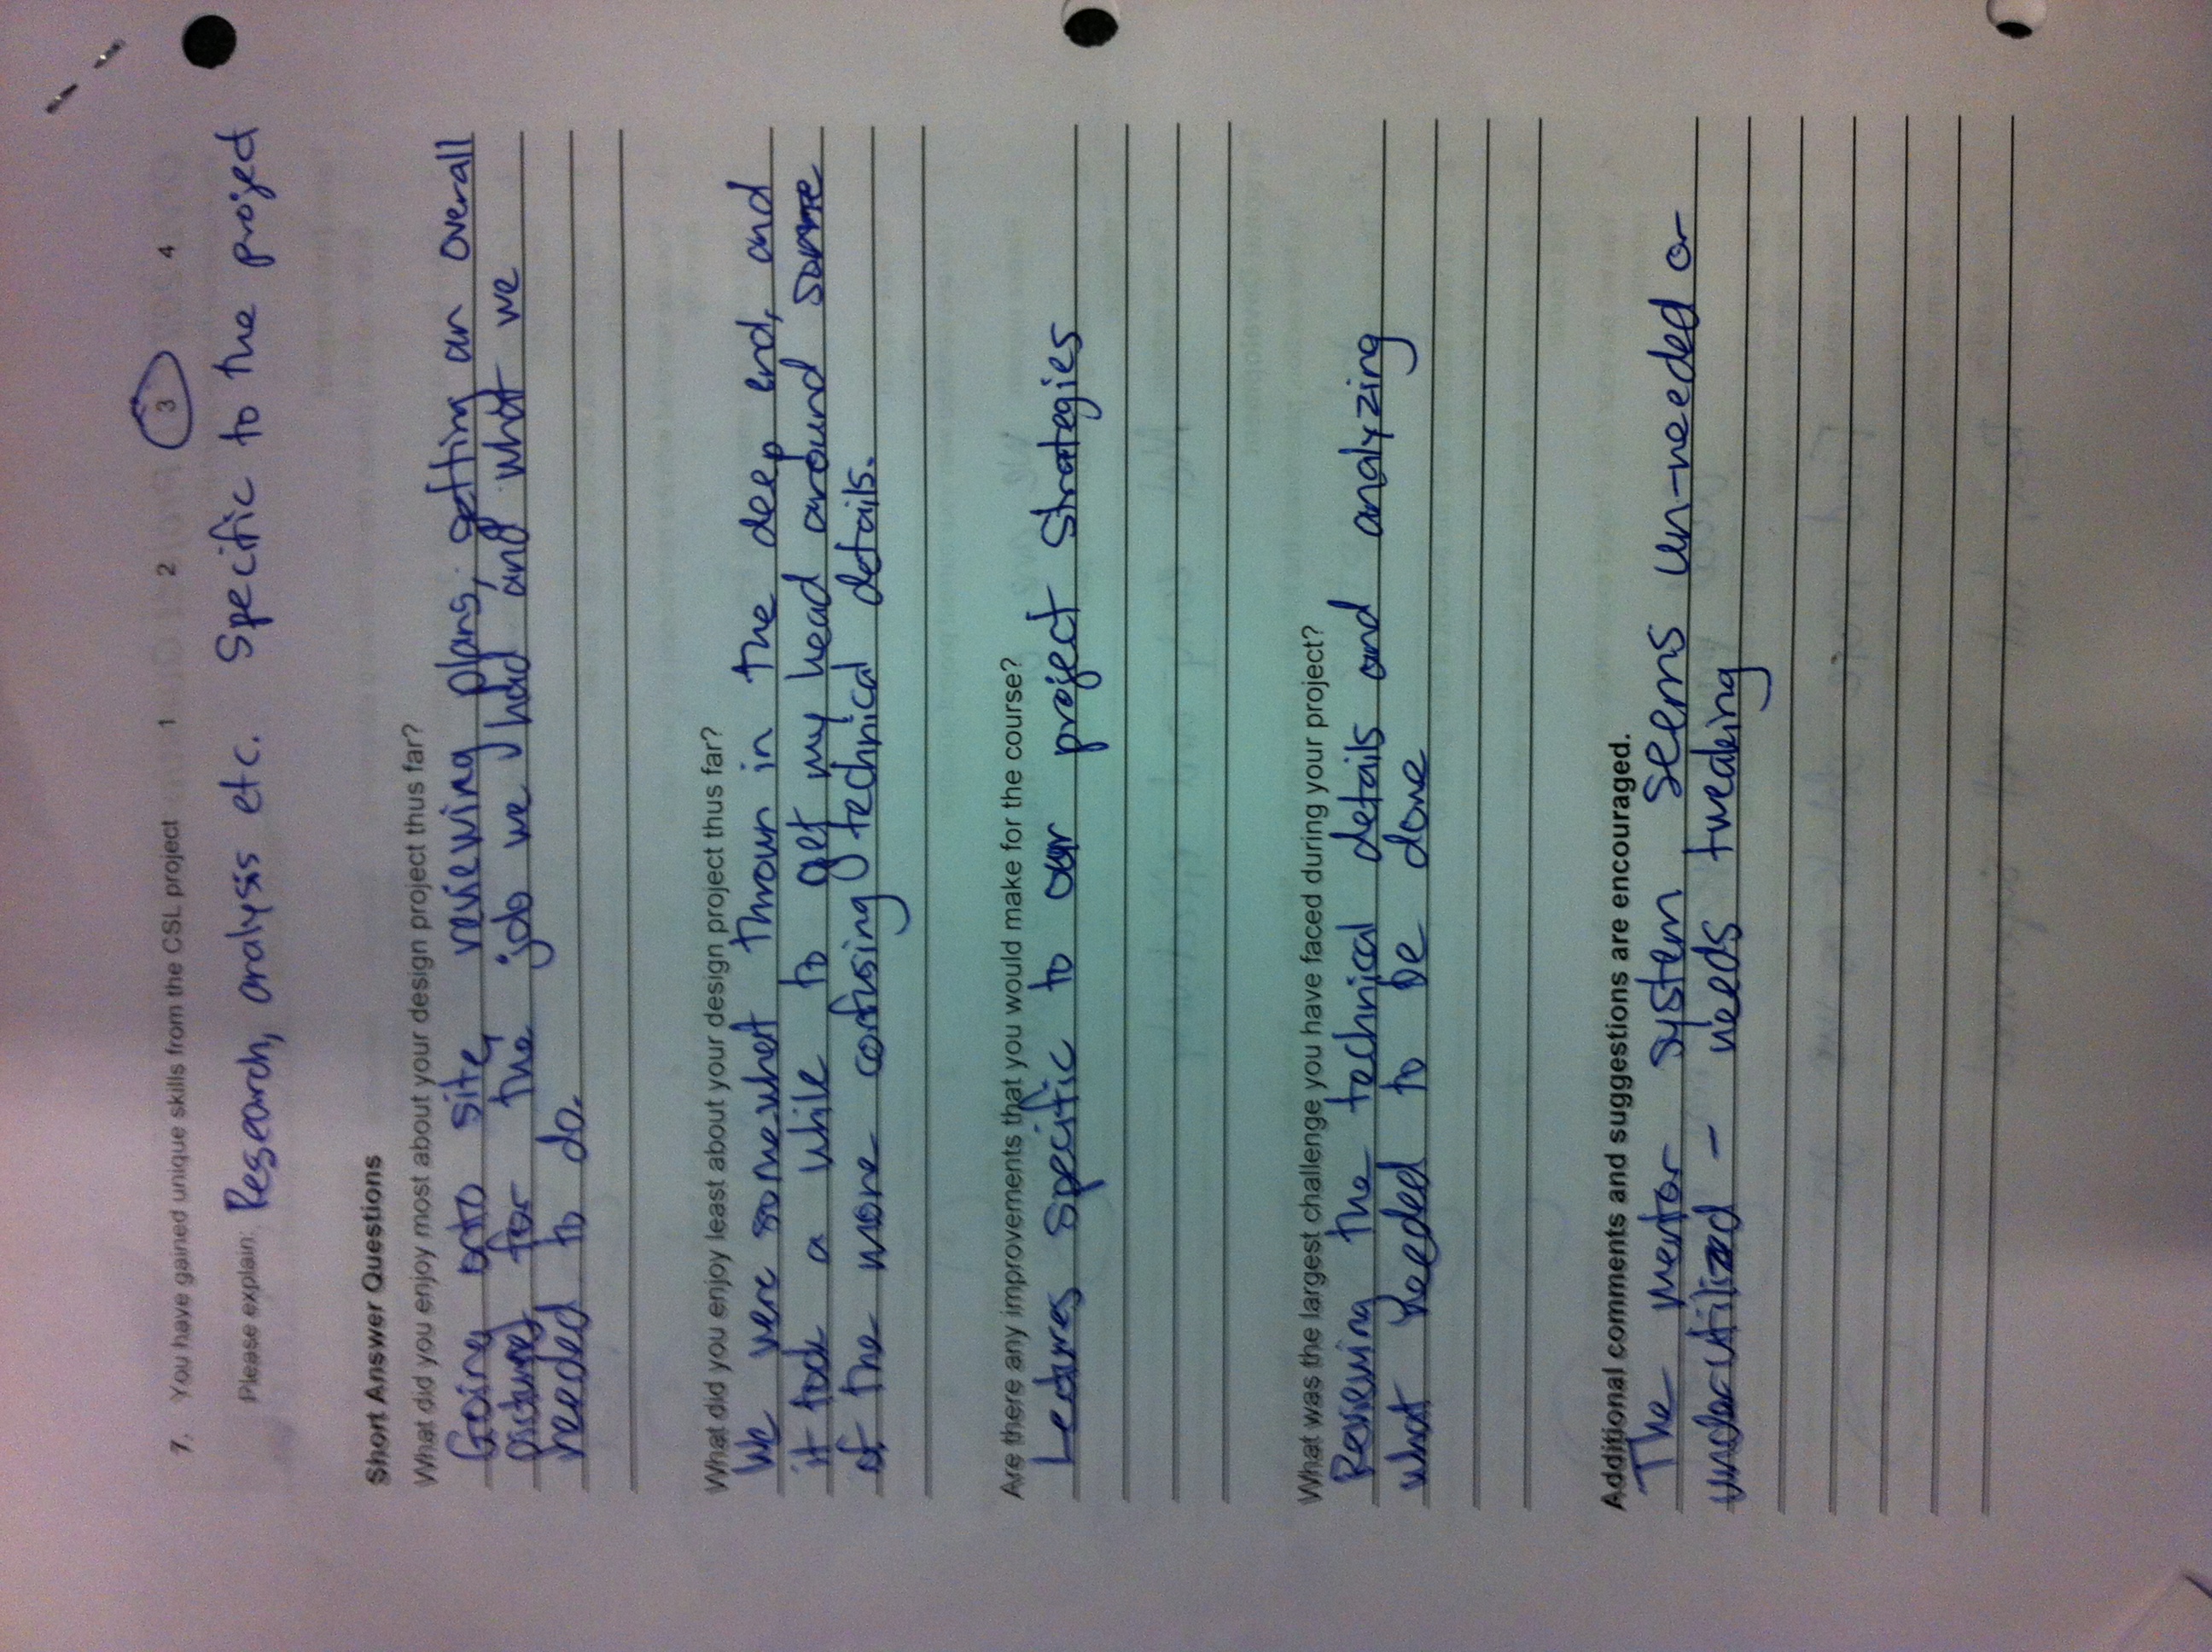 7. You have gained unique skills from the CSL project 1 2 3 4
Please explain: Research, analysis etc. Specific to the project
Short Answer Questions
What did you enjoy most about your design project thus far?
Going onto site, reviewing plans, getting an overall
picture for the job we had and what we
needed to do.
What did you enjoy least about your design project thus far?
We were somewhat thrown in the deep end, and
it took a while to get my head around some
of the more confusing technical details.
Are there any improvements that you would make for the course?
Lectures specific to our project strategies
What was the largest challenge you have faced during your project?
Reviewing the technical details and analyzing
what needed to be done
Additional comments and suggestions are encouraged.
The mentor system seems un-needed or
underutilized - needs tweaking